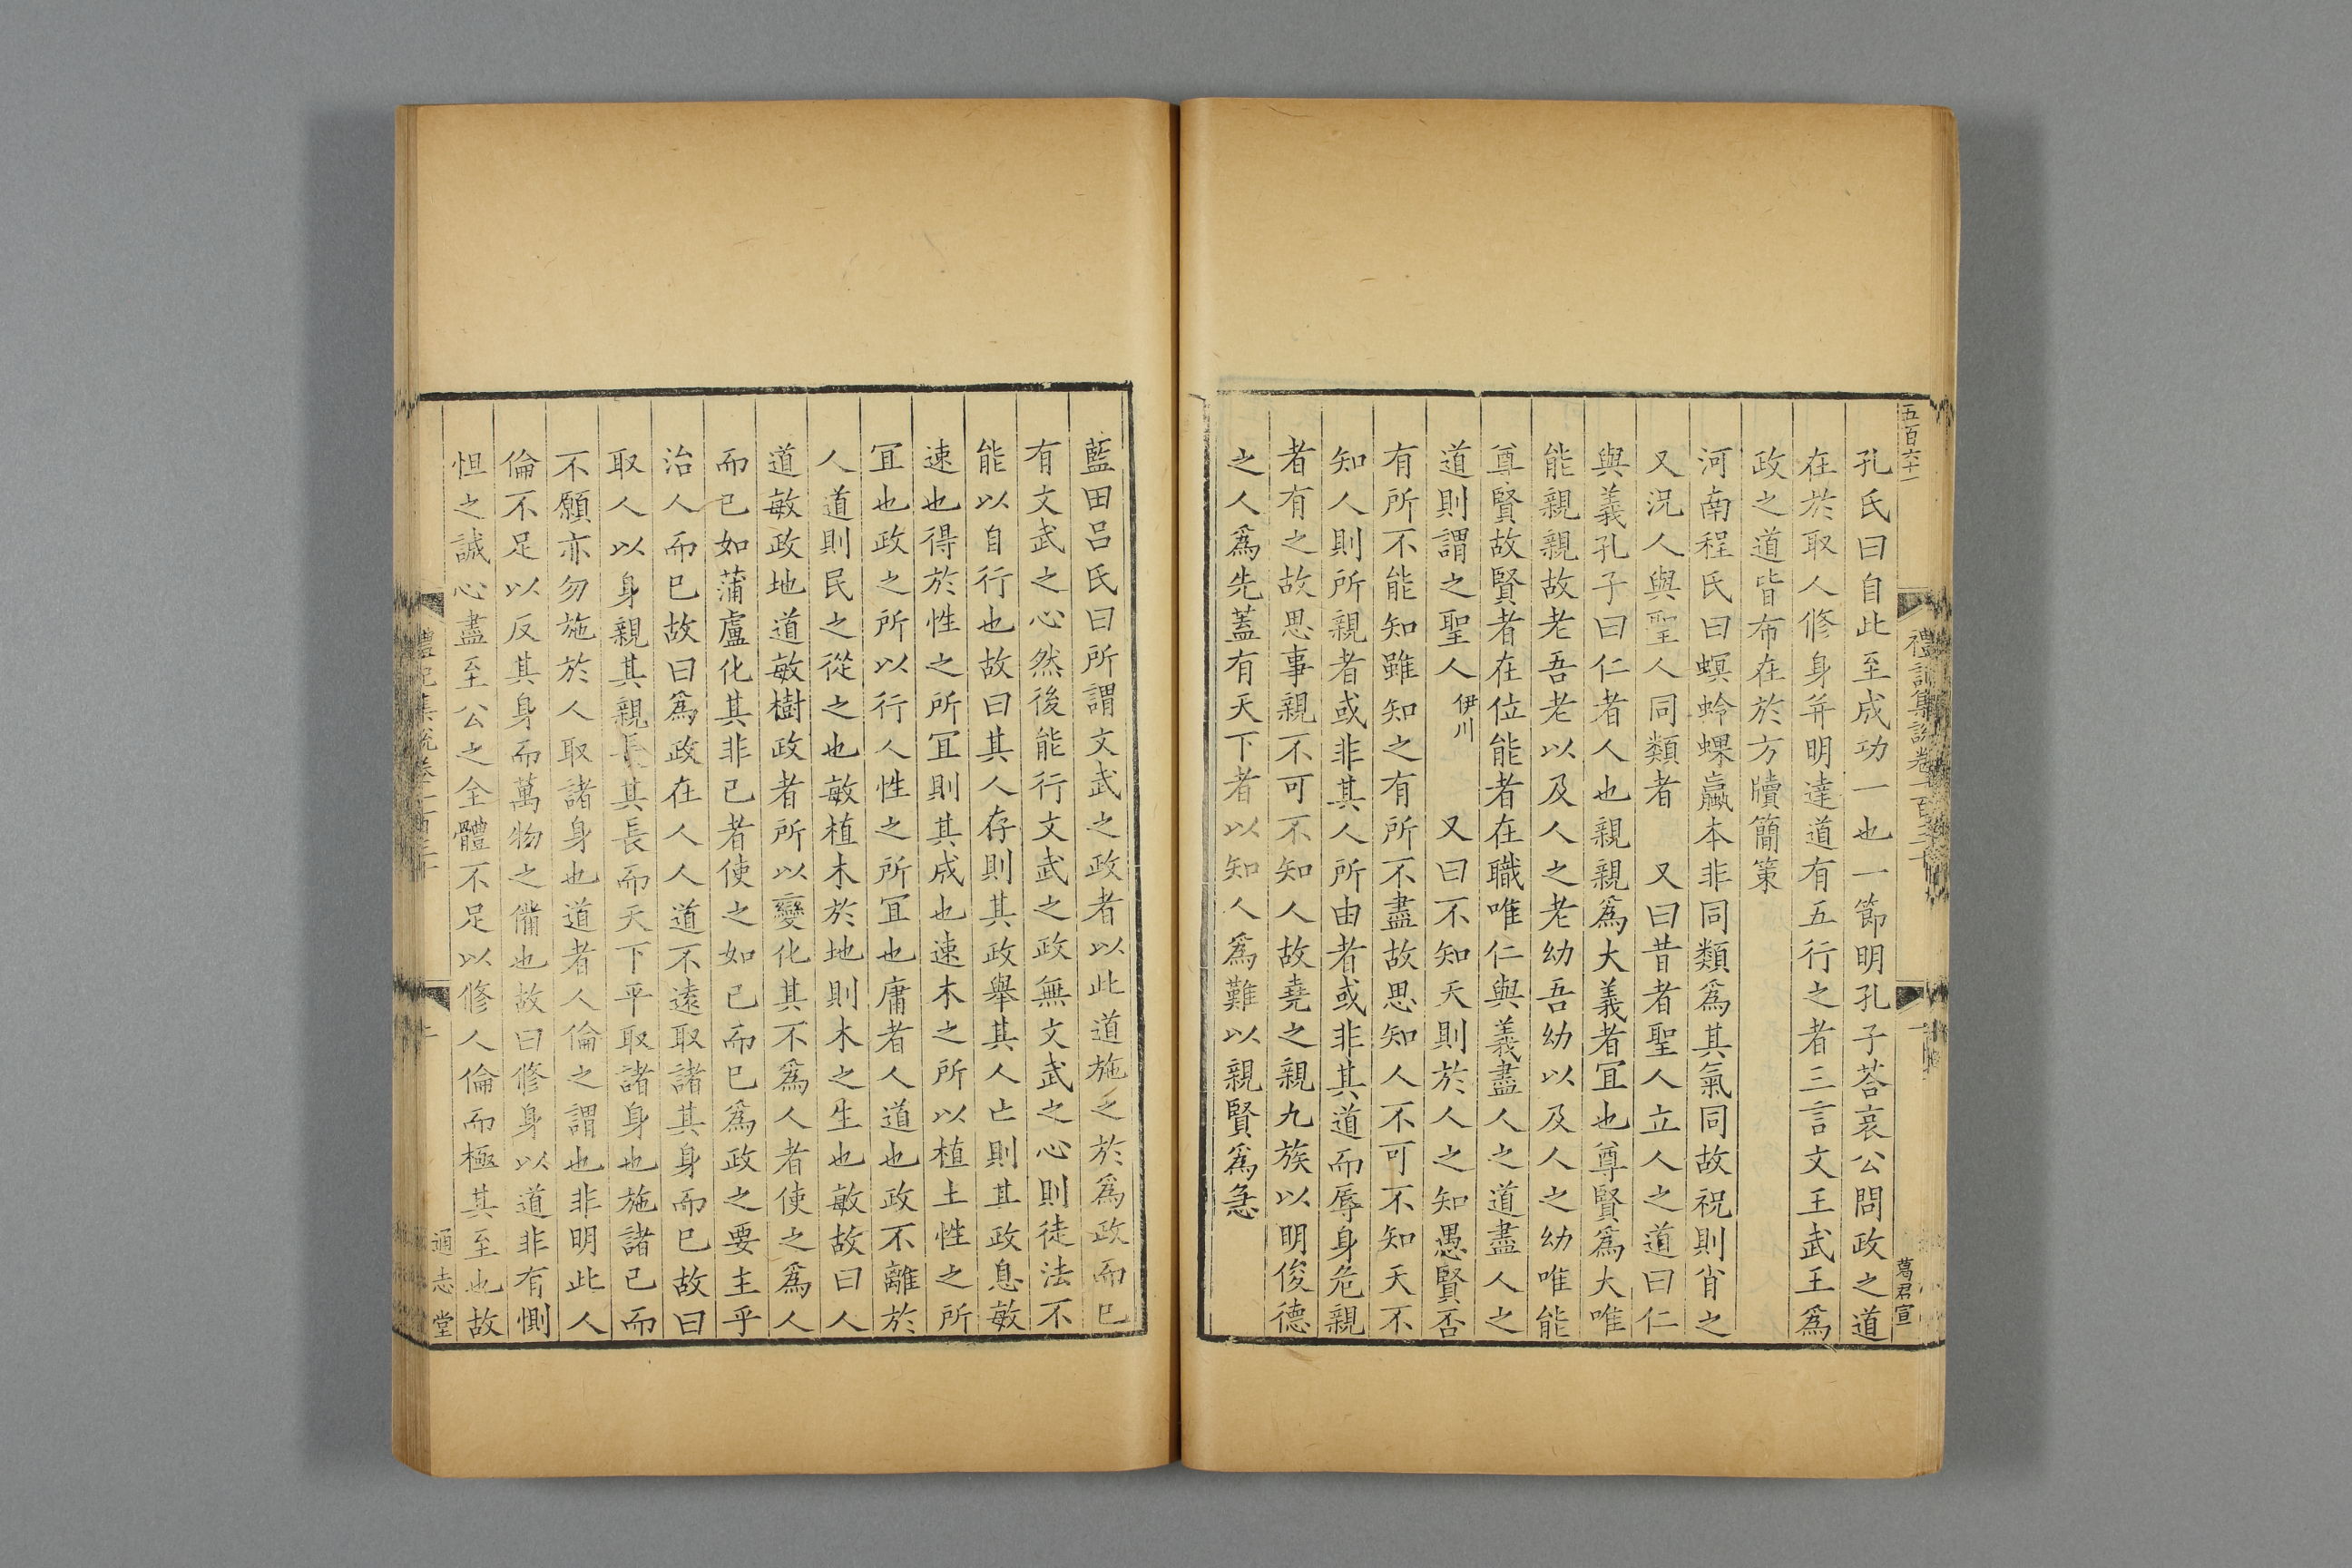 五百六十一
孔氏曰自此至成功一也一節明孔子荅哀公問政之道
在於取人修身并明達道有五行之者三言文王武王爲
政之道皆布在於方牘簡策
河南程氏曰螟蛉蜾蠃本非同類爲其氣同故祝則肖之
又況人與聖人同類者　又曰昔者聖人立人之道曰仁
與義孔子曰仁者人也親親爲大義者宜也尊賢爲大唯
能親親故老吾老以及人之老幼吾幼以及人之幼唯能
尊賢故賢者在位能者在職唯仁與義盡人之道盡人之
道則謂之聖人伊川　又曰不知天則於人之知愚賢否
有所不能知雖知之有所不盡故思知人不可不知天不
知人則所親者或非其人所由者或非其道而辱身危親
者有之故思事親不可不知人故堯之親九族以明俊德
之人爲先蓋有天下者以知人爲難以親賢爲急
禮記集說卷一百三十
萬君宣
藍田呂氏曰所謂文武之政者以此道施之於爲政而已
有文武之心然後能行文武之政無文武之心則徒法不
能以自行也故曰其人存則其政舉其人亡則其政息敏
速也得於性之所宜則其成也速木之所以植土性之所
宜也政之所以行人性之所宜也庸者人道也政不離於
人道則民之從之也敏植木於地則木之生也敏故曰人
道敏政地道敏樹政者所以變化其不爲人者使之爲人
而已如蒲盧化其非已者使之如已而已爲政之要主乎
治人而已故曰爲政在人人道不遠取諸其身而已故曰
取人以身親其親長其長而天下平取諸身也施諸已而
不願亦勿施於人取諸身也道者人倫之謂也非明此人
倫不足以反其身而萬物之備也故曰修身以道非有惻
怛之誠心盡至公之全體不足以修人倫而極其至也故
禮記集說卷一百三十
通志堂